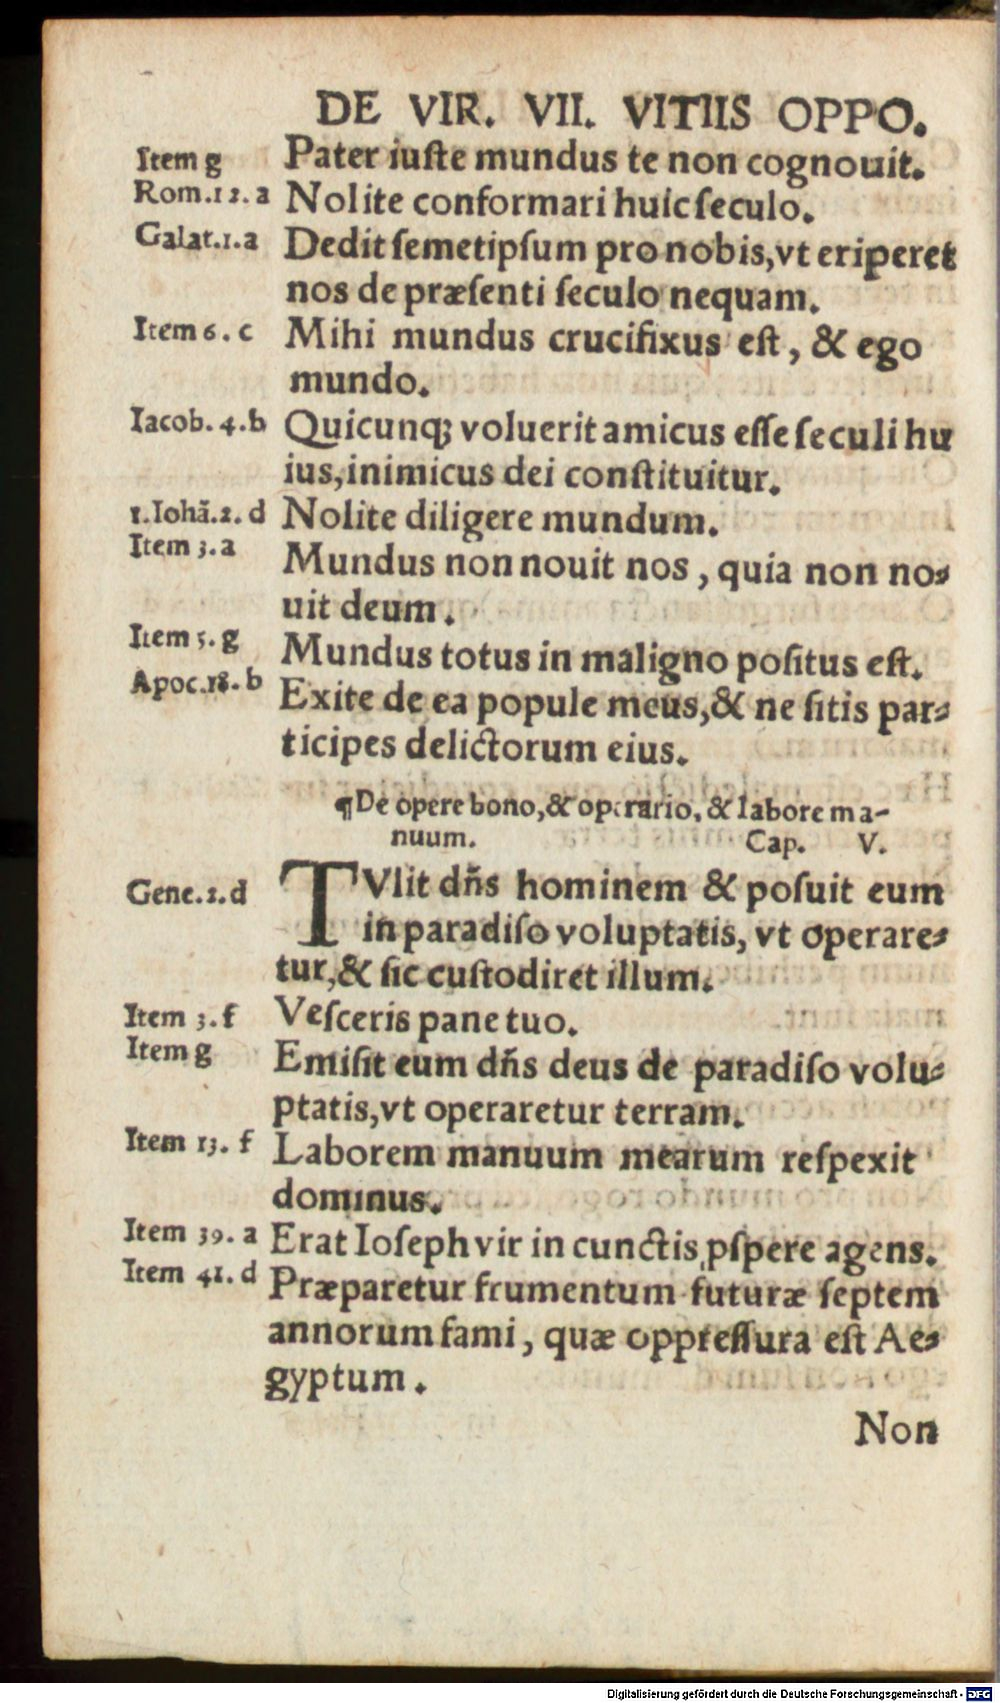 DE VIR. VII. VITIIS OPPO.
Item g Pater iuſte mundus te non cognouit.
Rom.12.a Nolite conformari huic ſeculo.
Galat.1.a Dedit ſemetipſum pro nobis, vt eriperet
nos de præſenti ſeculo nequam.
Item 6. c Mihi mundus crucifixus eſt, & ego
mundo.
Iacob. 4.b Quicunq; voluerit amicus eſſe ſeculi hu
ius, inimicus dei conſtituitur.
1.Iohã.2. d Nolite diligere mundum.
Item 3.a Mundus non nouit nos, quia non no⸗
uit deum.
Item 5. g Mundus totus in maligno poſitus eſt.
Apoc.18. b Exite de ea popule meus, & ne ſitis par⸗
ticipes delictorum eius.
¶ De opere bono, & operario, & labore ma-
nuum. Cap. V.
Gene.2.d TVlit dñs hominem & poſuit eum
in paradiſo voluptatis, vt operare⸗
tur, & ſic cuſtodiret illum.
Item 3. f Veſceris pane tuo.
Item g Emiſit eum dñs deus de paradiſo volu⸗
ptatis, vt operaretur terram.
Item 13. f Laborem manuum mearum reſpexit
dominus.
Item 39. a Erat Ioſeph vir in cunctis ꝓſpere agens.
Item 41. d Præparetur frumentum futuræ ſeptem
annorum fami, quæ oppreſſura eſt Ae⸗
gyptum.
Non
Digitalisierung gefördert durch die Deutsche Forschungsgemeinschaft - DFG